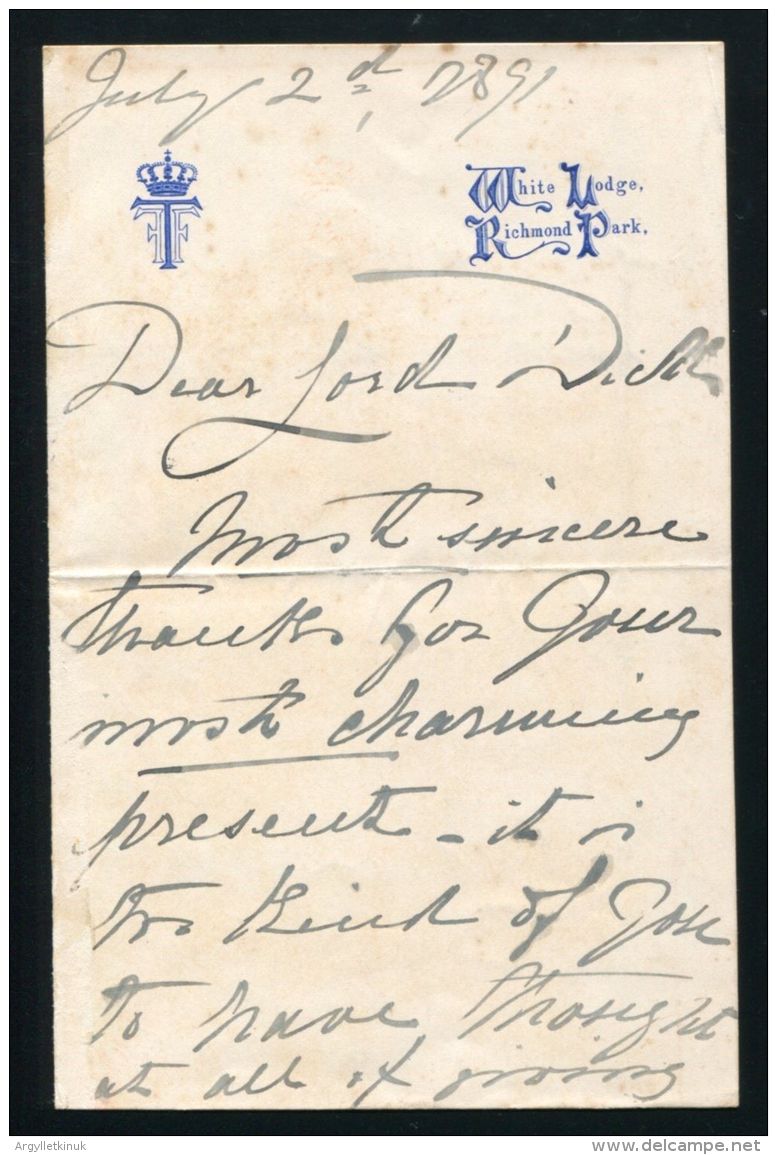 July 2d, 1891
TFF
White Lodge,
Richmond Park.
Dear Lord Dick
Most sincere
thanks for your
most charming
present - it is
too kind of you
to have thought
at all of giving
Argylletkinuk
delcampe.net